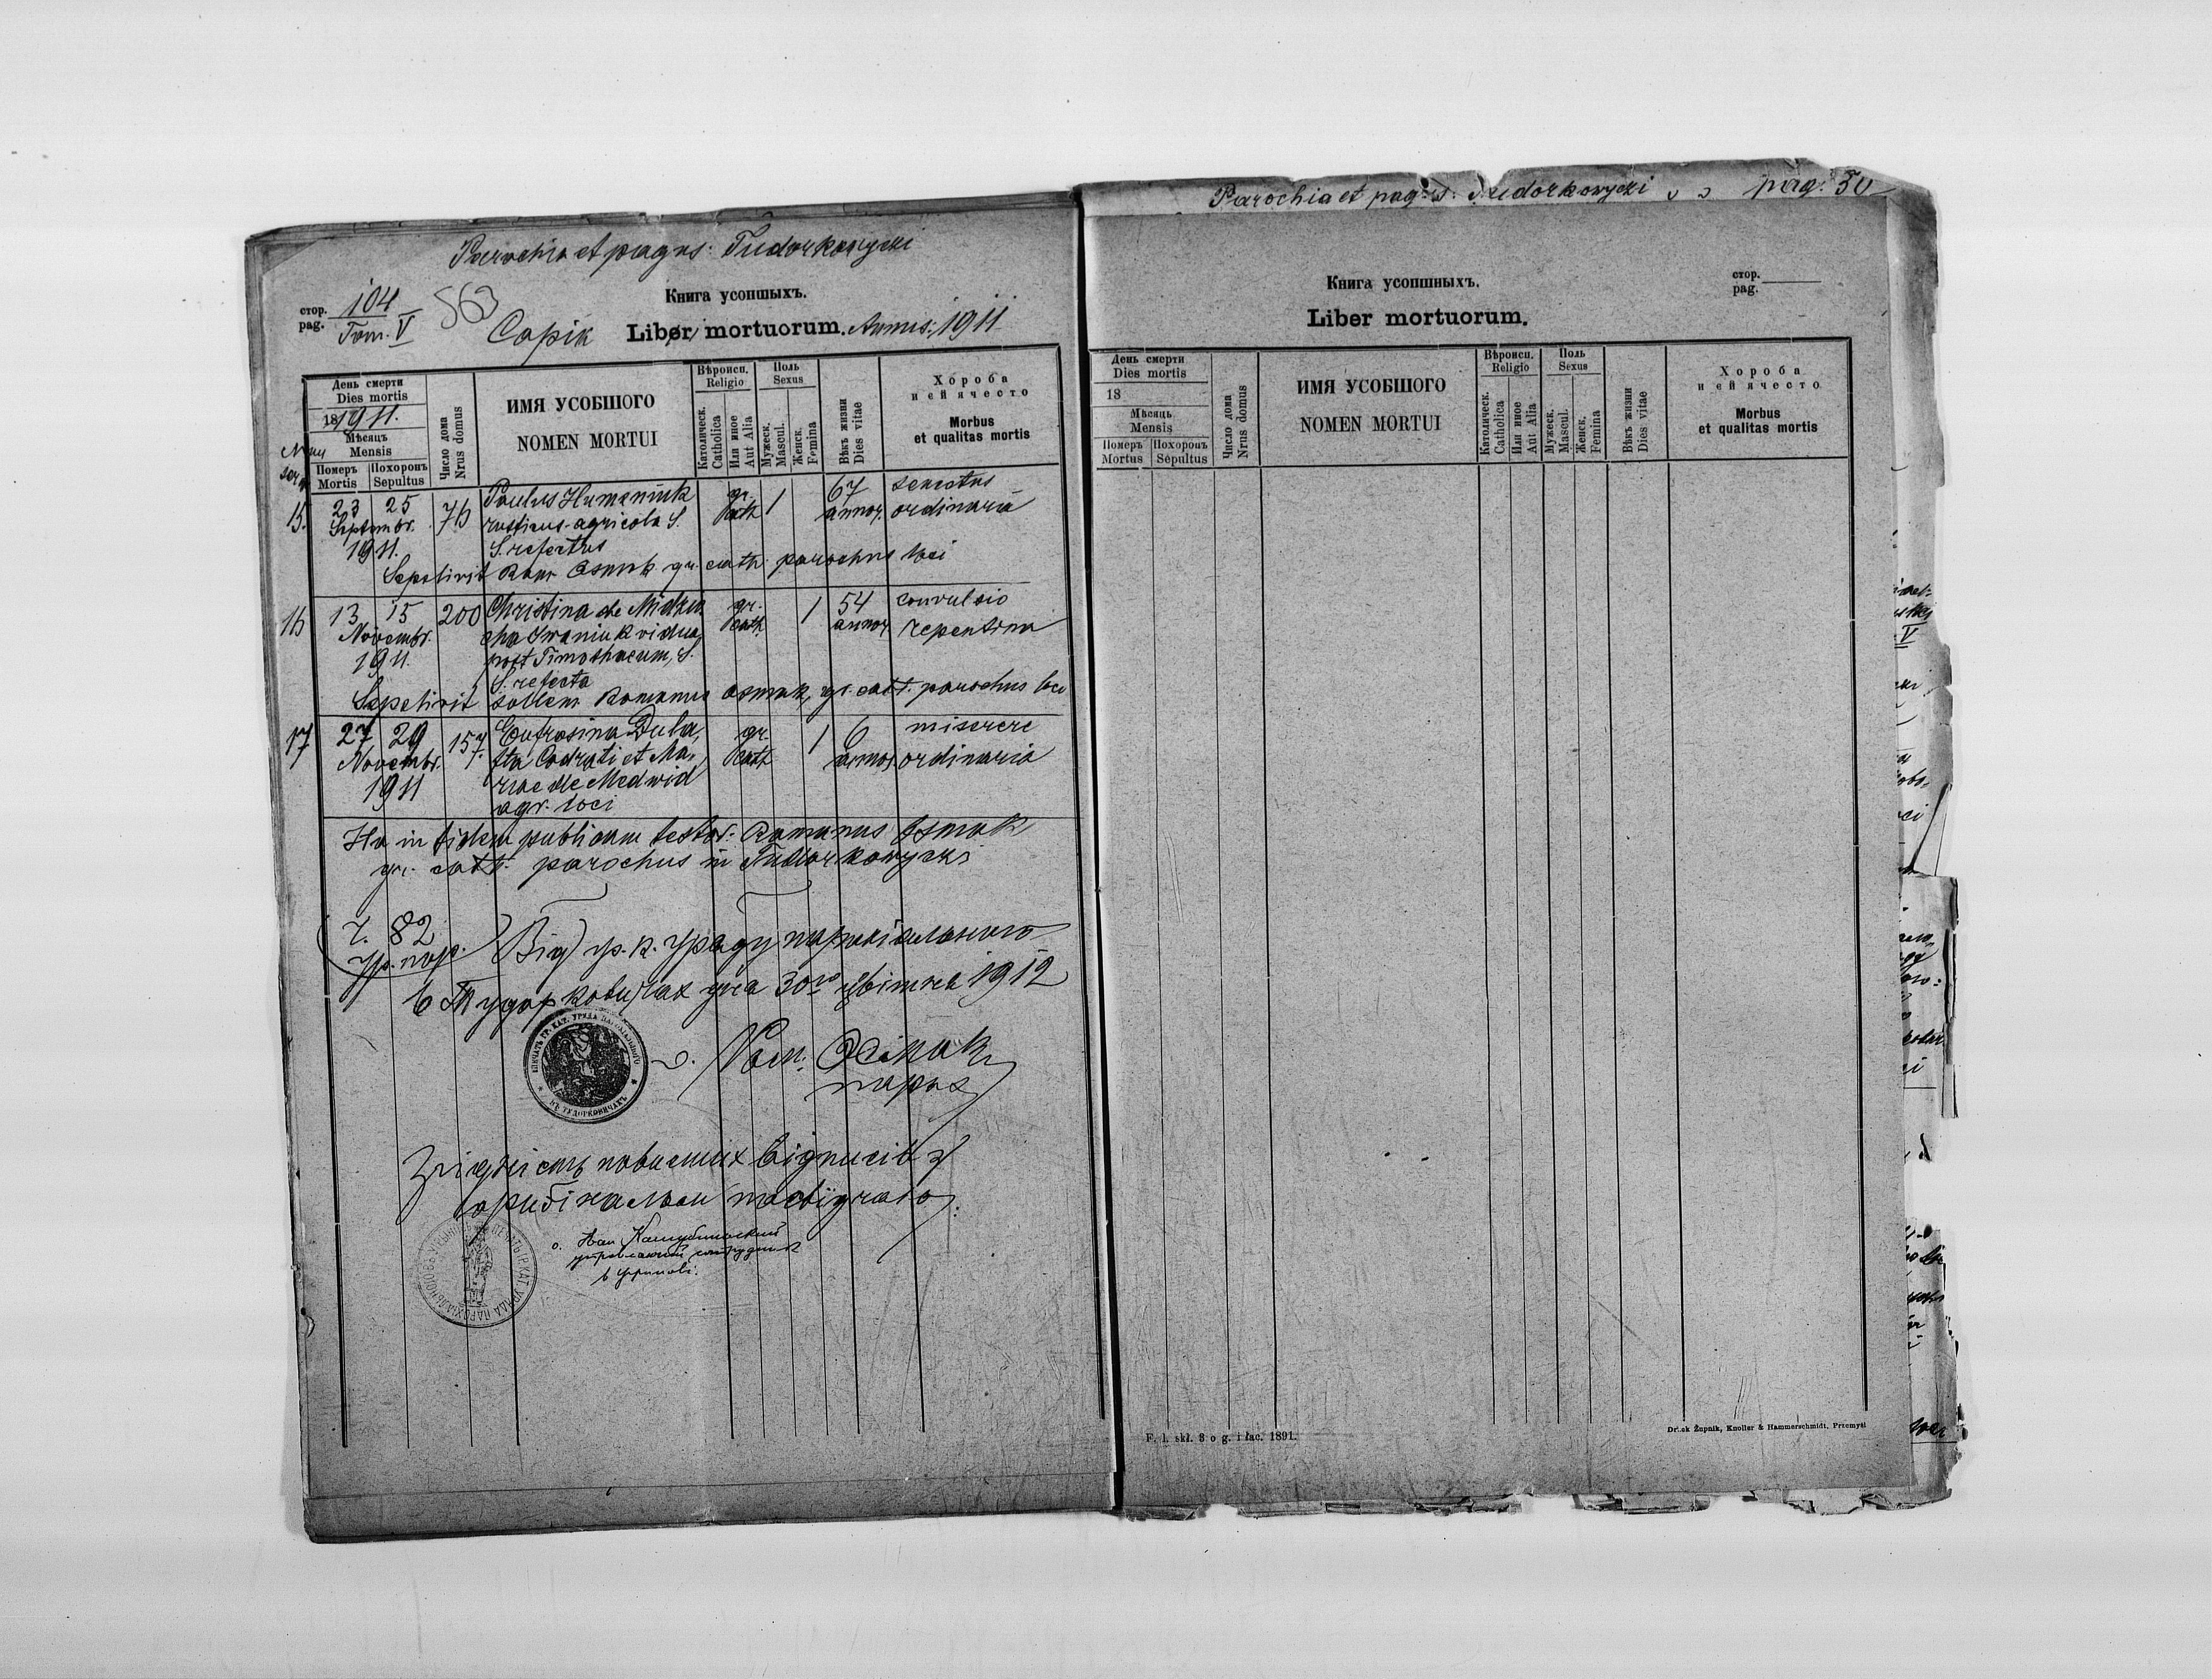 Parochia et pagus: Tudorkowyczi
стор. pag. 104 Tom. V
563
Книга усопшыхъ.
Copia Libri mortuorum. Annus: 1911
День смерти
Dies mortis
1911.
Мѣсяць
Mensis
Померъ Mortis
Похоронъ Sepultus
Число дома
Nrus domus
ИМЯ УСОБШОГО
NOMEN MORTUI
Вѣроисп.
Religio
Католическ. Catholica
Или иное Aut Alia
Поль
Sexus
Мужеск. Mascul.
Женск. Femina
Вѣкъ жизни
Dies vitae
Хороба
и ей ячесто
Morbus
et qualitas mortis
15. 23 25 Septembr. 1911. 76
Paulus Humeniuk
rusticus-agricola S.
S. refectus
gr. cath. 1 67 annor.
senectus
ordinaria
Sepelivit Rom Osmak gr. cath. parochus loci
16 13 15 Novembr. 1911. 200
Christina de
cha Iwaniuk vidua
post Timothaeum, S.
S. refecta
gr. cath. 1 54 annor
convulsio
repentina
Sepelivit sollem Romanus Osmak, gr. cath. parochus loci
17 27 29 Novembr. 1911 157.
Eufrosina Duba,
fia Codrati et Ma-
riae de Medwid
agr. loci
gr. cath. 1 6 annor
miserere
ordinaria
in fidem publicam testor: Romanus Osmak
gr. cath. parochus in Tudorkowyczi
Ч. 82
Ур. пар.
Від гр. к. Уряду парохіяльного
в Тудорковичах дня 30го цвітня 1912
о. Ром. Осмак
парох
Згідність повисших відписів з
оригіналом посвідчаю.
о. Іван
сотрудник
в
Parochia et pagus: Tudorkowyczi pag. 50
Книга усопшныхъ.
стор. pag.
Liber mortuorum.
День смерти
Dies mortis
18
Мѣсяць
Mensis
Померъ Mortus
Похоронъ Sepultus
Число дома
Nrus domus
ИМЯ УСОБШОГО
NOMEN MORTUI
Вѣроисп.
Religio
Католическ. Catholica
Или иное Aut Alia
Поль
Sexus
Мужеск. Mascul.
Женск. Femina
Вѣкъ жизни
Dies vitae
Хороба
и ей ячесто
Morbus
et qualitas mortis
F. 1. skł. 8 o g. i łac. 1891.
Druk Żupnik, Knoller & Hammerschmidt, Przemyśl